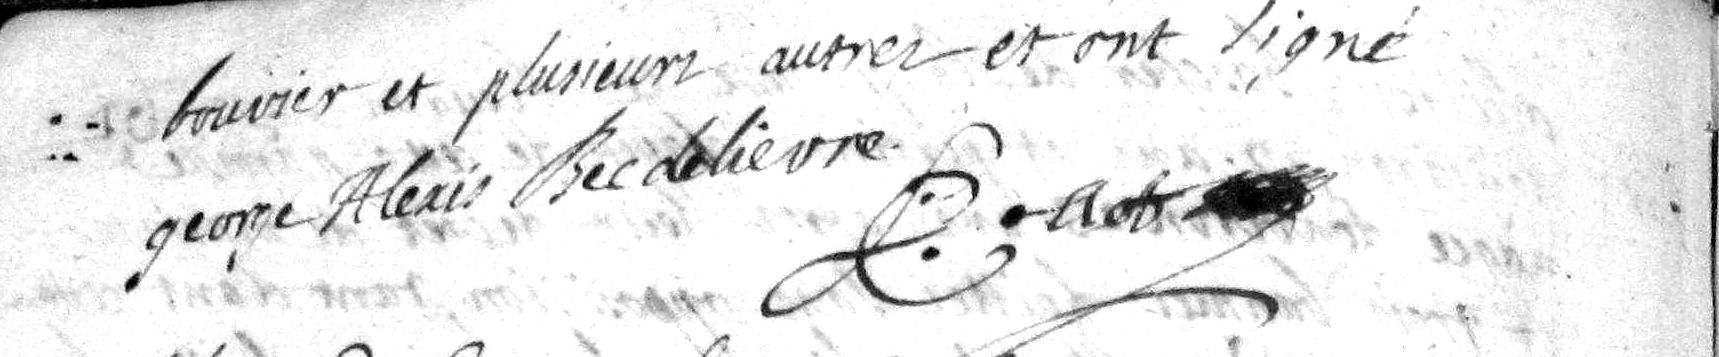 bouvier et plusieurs autres et ont signé
george Alexis Becdelievre